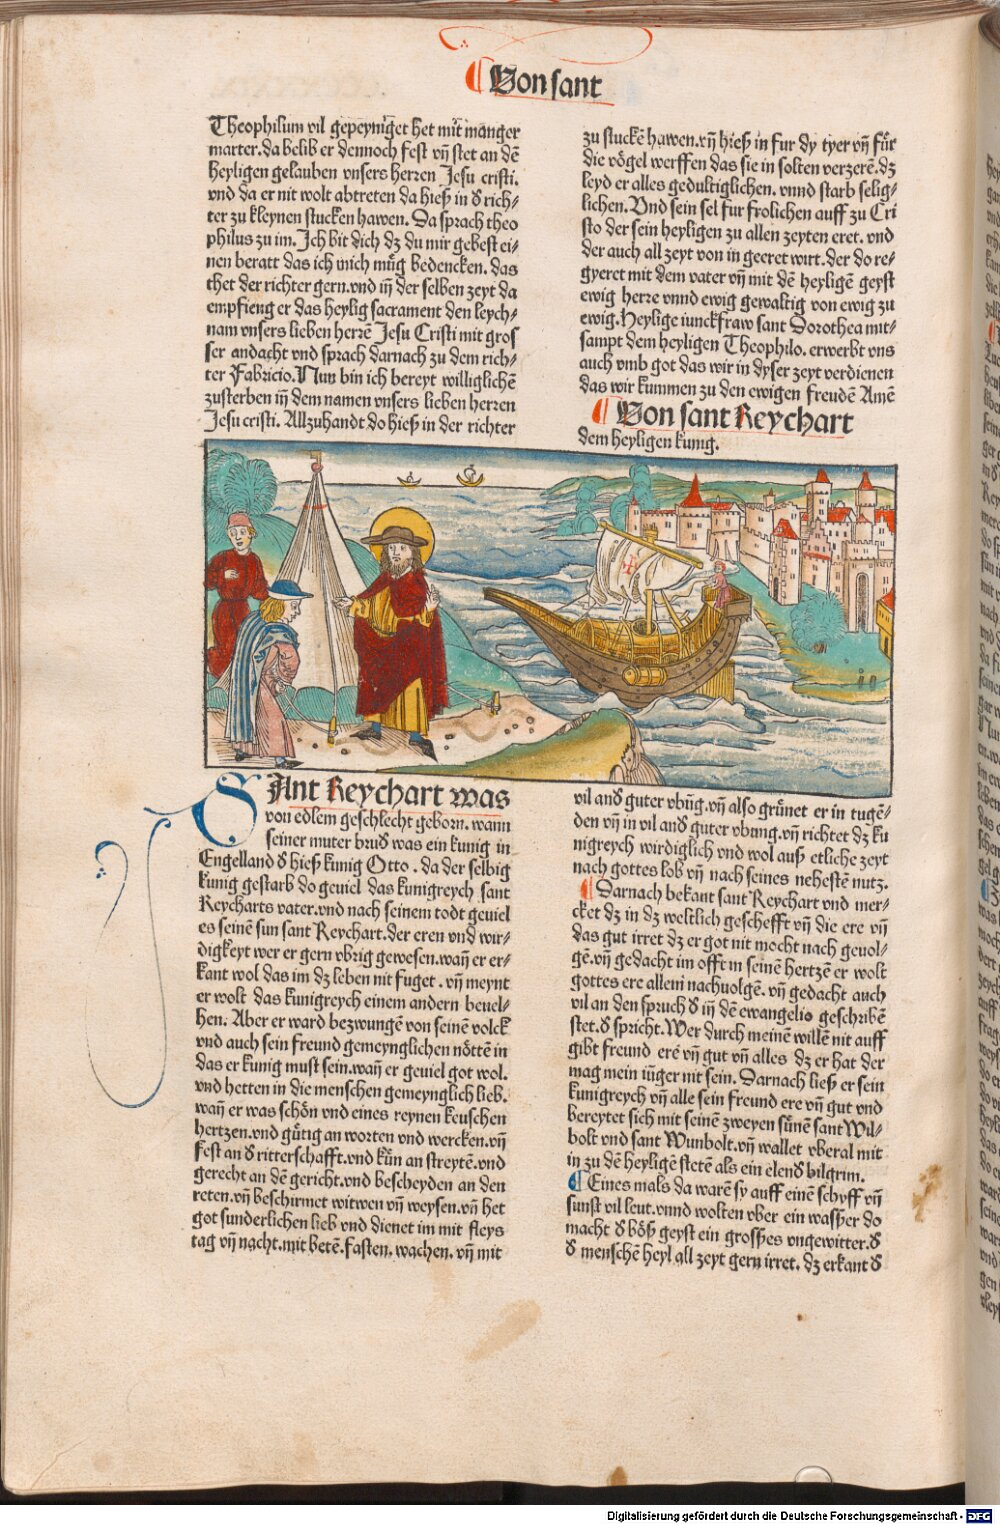 Von sant
Theophilum vil gepeyniget het mit manger
marter. da belib er dennoch fest vn̄ stet an dē
heyligen gelauben vnsers herren Jesu cristi.
vnd da er nit wolt abtreten da hieß in d̓ rich⸗
ter zu kleynen stucken hawen. Da sprach theo
philus zu im. Ich bit dich dz du mir gebest ei⸗
nen beratt das ich mich mu̇g bedencken. das
thet der richter gern. vnd in̄ der selben zeyt da
empfieng er das heylig sacrament den leych⸗
nam vnsers lieben herrē Jesu Cristi mit gros
ser andacht vnd sprach darnach zu dem rich⸗
ter Fabricio. Nun bin ich bereyt williglichē
zusterben in̄ dem namen vnsers lieben herren
Jesu cristi. Allzuhandt do hieß in der richter
zu stuckē hawen. vn̄ hieß in fur dy tyer vn̄ fu̇r
die vo̊gel werffen das sie in solten verzerē. dz
leyd er alles gedultiglichen. vnnd starb selig⸗
lichen. Vnd sein sel fur frolichen auff zu Cri
sto der sein heyligen zu allen zeyten eret. vnd
der auch all zeyt von in geeret wirt. der do re⸗
gyeret mit dem vater vn̄ mit dē heyligē geyst
ewig herre vnnd ewig gewaltig von ewig zu
ewig. Heylige iunckfraw sant Dorothea mit⸗
sampt dem heyligen Theophilo. erwerbt vns
auch vmb got das wir in dyser zeyt verdienen
das wir kummen zu den ewigen freudē Amē
Von sant Reychart
dem heyligen kunig.
SAnt Reychart was
von edlem geschlecht geborn. wann
seiner muter brud̓ was ein kunig in
Engelland d̓ hieß kunig Otto. da der selbig
kunig gestarb do geuiel das kunigreych sant
Reycharts vater. vnd nach seinem todt geuiel
es seinē sun sant Reychart. der eren vnd wir⸗
digkeyt wer er gern vbrig gewesen. wan̄ er er⸗
kant wol das im dz leben nit fuget. vn̄ meynt
er wolt das kunigreych einem andern beuel⸗
hen. Aber er ward bezwungē von seinē volck
vnd auch sein freund gemeynglichen no̊ttē in
das er kunig must sein. wan̄ er geuiel got wol.
vnd hetten in die menschen gemeynglich lieb.
wan̄ er was scho̊n vnd eines reynen keuschen
hertzen. vnd gu̇tig an worten vnd wercken. vn̄
fest an d̓ ritterschafft. vnd ku̇n an streytē. vnd
gerecht an dē gericht. vnd bescheyden an den
reten. vn̄ beschirmet witwen vn̄ weysen. vn̄ het
got sunderlichen lieb vnd dienet im mit fleys
tag vn̄ nacht. mit betē. fasten. wachen. vn̄ mit
vil and̓ guter vbu̇g. vn̄ also gru̇net er in tugē⸗
den vn̄ in vil and̓ guter vbung. vn̄ richtet dz ku
nigreych wirdiglich vnd wol auß etliche zeyt
nach gottes lob vn̄ nach seines nehestē nutz.
Darnach bekant sant Reychart vnd mer⸗
cket dz in dz weltlich geschefft vn̄ die ere vn̄
das gut irret dz er got nit mocht nach geuol⸗
gē. vn̄ gedacht im offt in seinē hertzē er wolt
gottes ere allein nachuolgē. vn̄ gedacht auch
vil an den spruch d̓ in̄ dē ewangelio geschribē
stet. d̓ spricht. Wer durch meinē willē nit auff
gibt freund erē vn̄ gut vn̄ alles dz er hat der
mag mein iu̇ger nit sein. Darnach ließ er sein
kunigreych vn̄ alle sein freund ere vn̄ gut vnd
bereytet sich mit seinē zweyen su̇nē sant Wil⸗
bolt vnd sant Wunbolt. vn̄ wallet vberal mit
in zu dē heyligē stetē als ein elend̓ bilgrim.
Eines mals da warē sy auff einē schyff vn̄
sunst vil leut. vnnd wolten vber ein wasser do
macht d̓ bo̊ß geyst ein grosses vngewitter. d̓
d̓ menschē heyl all zeyt gern irret. dz erkant d̓
Digitalisierung gefördert durch die Deutsche Forschungsgemeinschaft - DFG